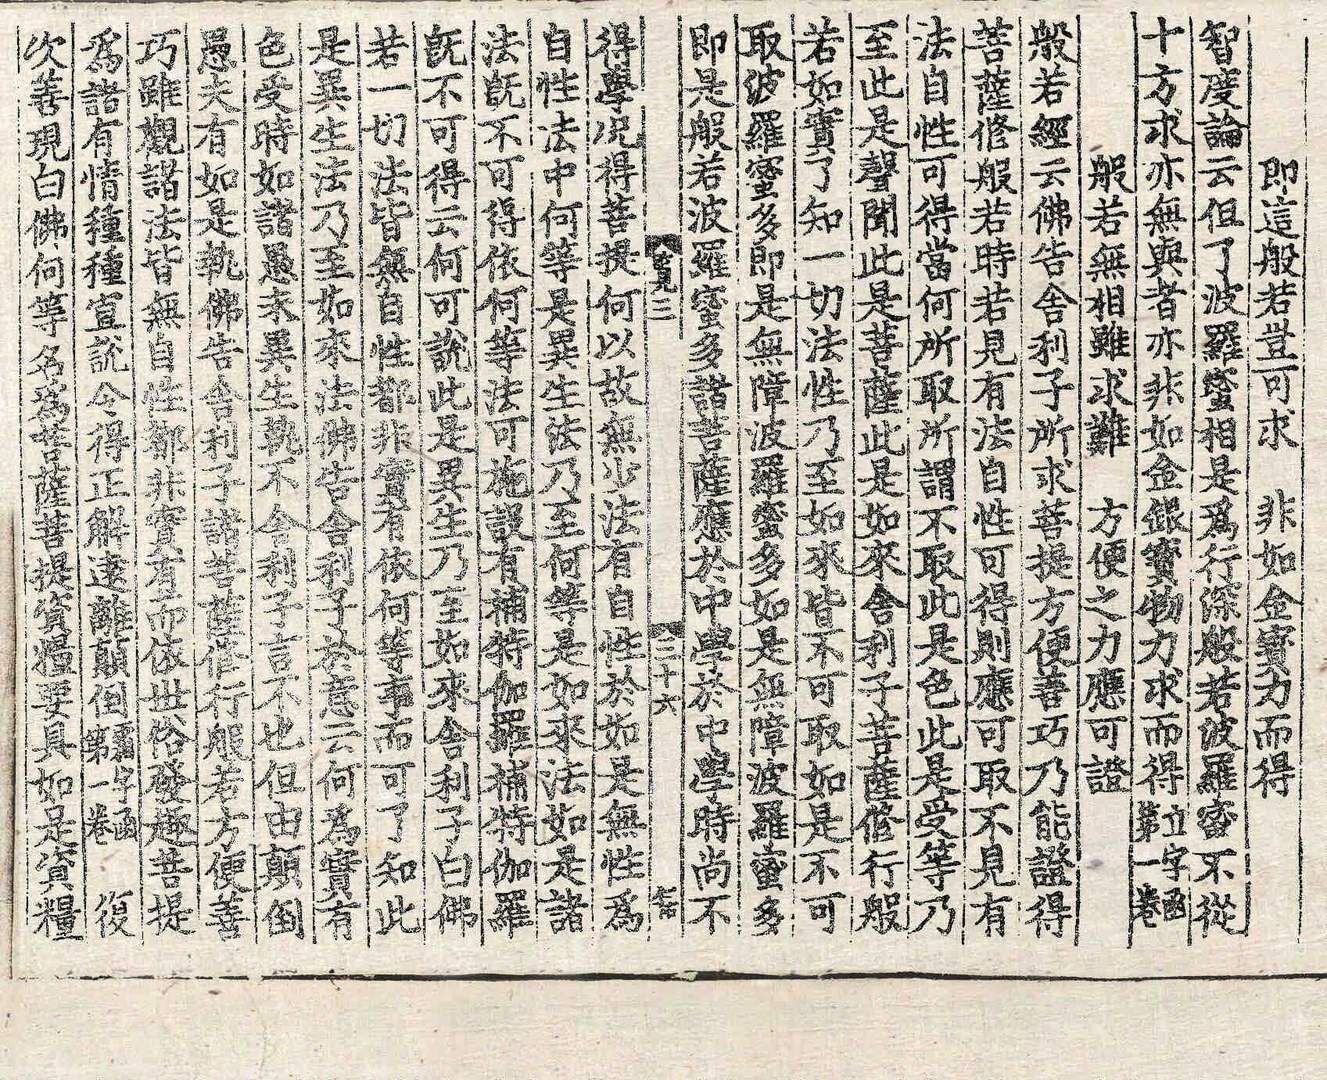 即這般若豈可求　非如金寶力而得
智度論云但了波羅蜜相是爲行深般若波羅蜜不從
十方求亦無與者亦非如金銀寶物力求而得立字函第一卷
般若無相雖求難　方便之力應可證
般若經云佛告舍利子所求菩提方便善巧乃能證得
菩薩修般若時若見有法自性可得則應可取不見有
法自性可得當何所取所謂不取此是色此是受等乃
至此是聲聞此是菩薩此是如來舍利子菩薩修行般
若如實了知一切法性乃至如來皆不可取如是不可
取波羅蜜多即是無障波羅蜜多如是無障波羅蜜多
即是般若波羅蜜多諸菩薩應於中學於中學時尚不
三　三十六
得學況得菩提何以故無少法有自性於如是無性爲
自性法中何等是異生法乃至何等是如來法如是諸
法旣不可得依何等法可施設有補特伽羅補特伽羅
旣不可得云何可說此是異生乃至如來舍利子白佛
若一切法皆無自性都非實有依何等事而可了知此
是異生法乃至如來法佛告舍利子於意云何爲實有
色受時如諸愚夫異生執不舍利子言不也但由顛倒
愚夫有如是執佛告舍利子諸菩薩修行般若方便善
巧雖觀諸法皆無自性都非實有而依世俗發趣菩提
爲諸有情種種宣說令得正解遠離顛倒字函第一卷　復
次善現白佛何等名爲菩薩菩提資糧要具如是資糧